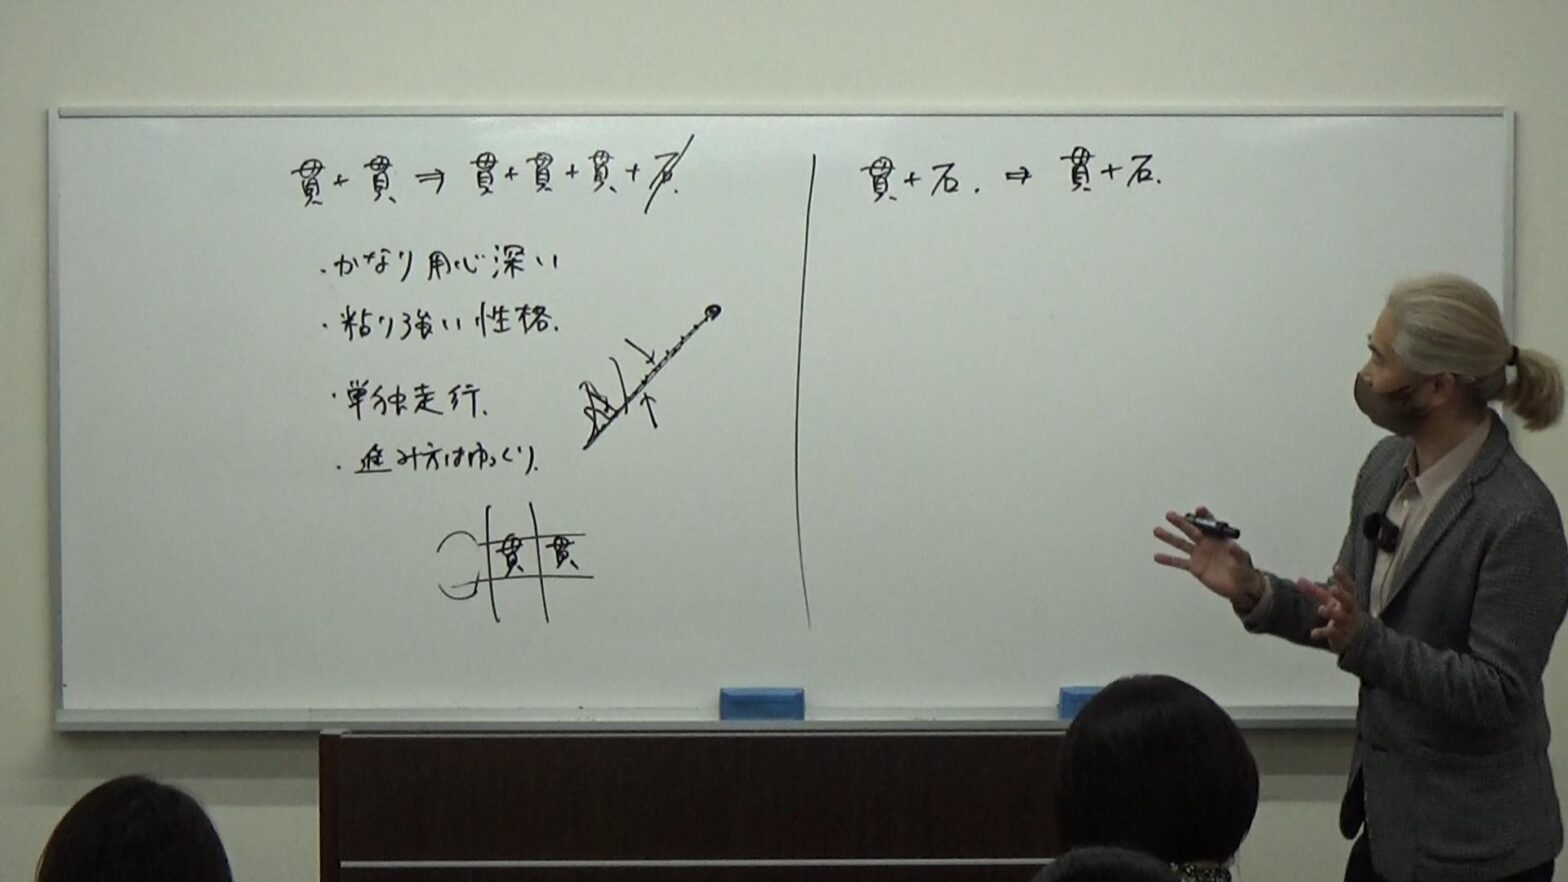 貫+貫⇒貫+貫+貫+石.
・かなり用心深い
・粘り強い性格.
・単独走行.
・進み方はゆっくり.
貫 貫
貫+石.⇒貫+石.